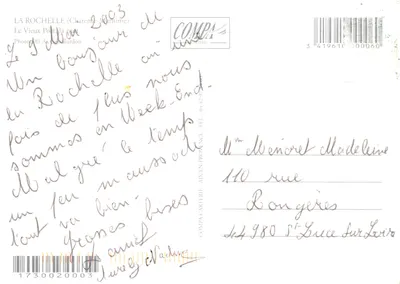 LA ROCHELLE
Le Vieux
Le 9 Mai 2003
Un bonjour de
la Rochelle où une
fois de plus nous
sommes en Week-End.
Malgré le temps
un peu maussade
tout va bien.
Grosses bises
3 419630 000060
Mme Menoret Madeleine
110 rue
Rongères
44980 Ste Luce Sur Loire
1730020003